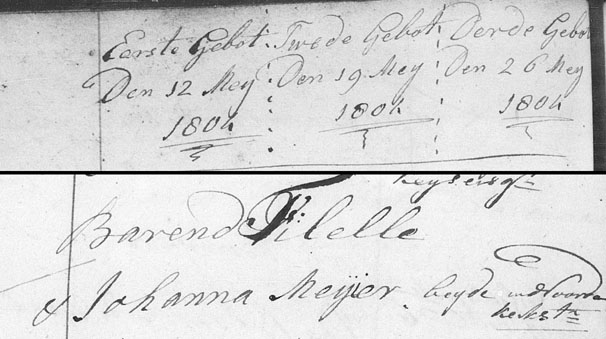 Eerste Gebot: Twede Gebot: Derde Gebot
Den 12 Mey : Den 19 Mey : Den 26 Mey
1804 1804 1804
Keysersgt
Barend Filelle
& Johanna Meijer beyde
kerkstr